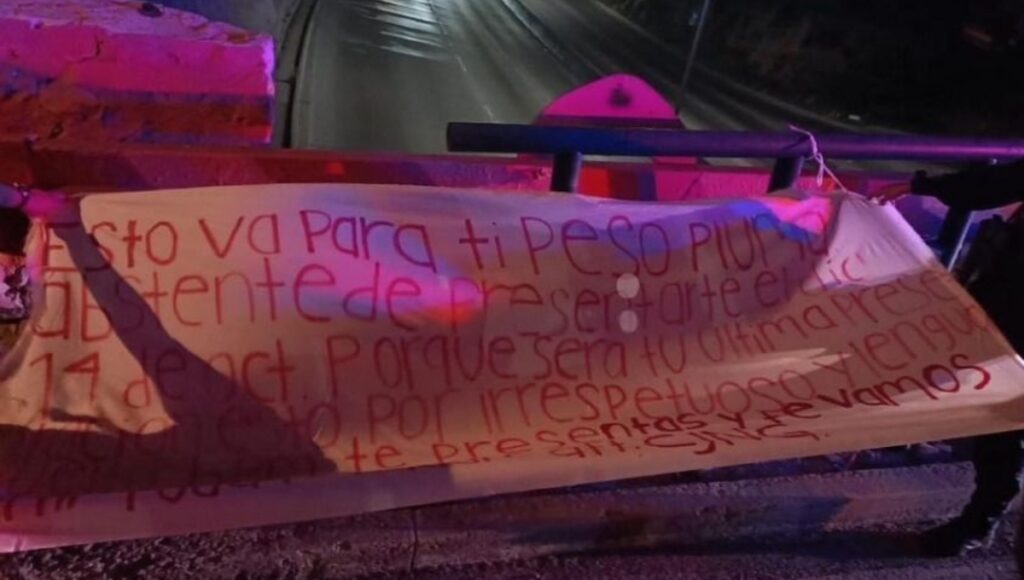 Esto va Para ti Peso Pluma
abstente de presentarte el dia
14 de oct. Porque sera tu ultima Prese
esto por irrespetuoso y lengu
te Presentas y te vamos
CJNG.